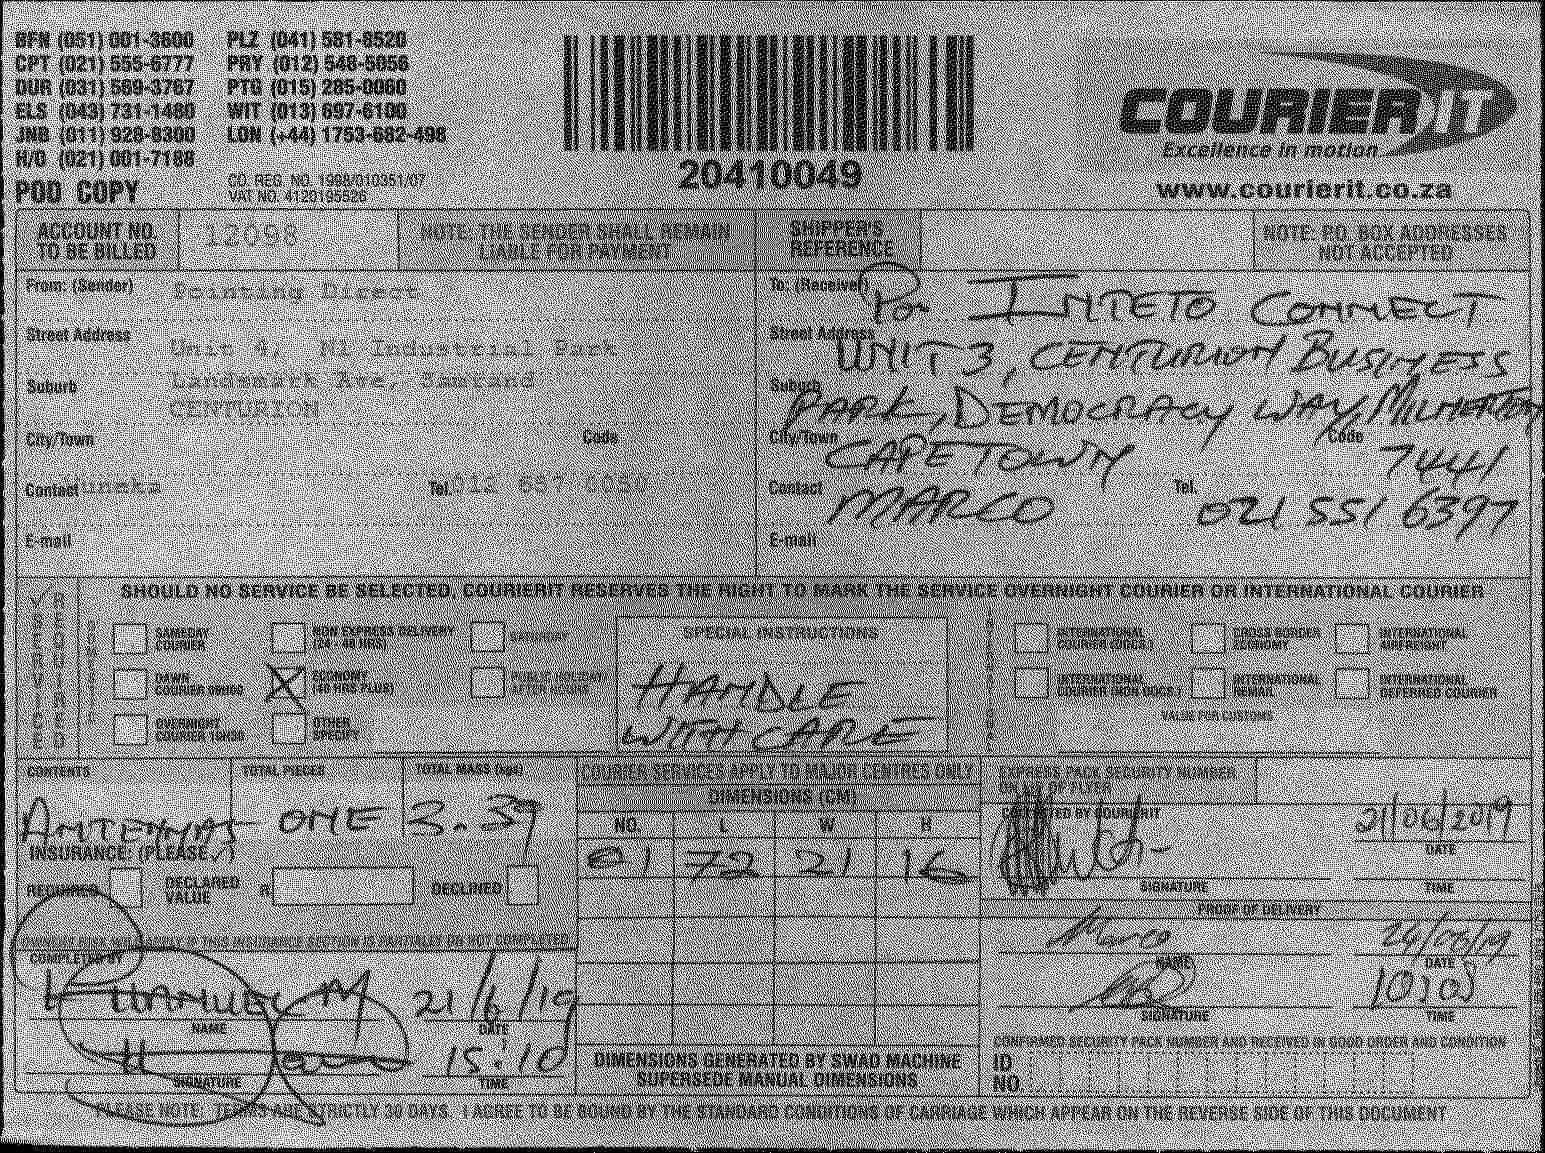 BFN (051) 001-3600 PLZ (041) 581-8520
CPT (021) 555-6777 PRY (012) 548-5056
DUR (031) 569-3767 PTG (015) 285-0060
ELS (043) 731-1460 WIT (013) 697-6100
JNB (011) 928-8300 LON (+44) 1753-682-498
H/O (021) 001-7188
POD COPY
CO. REG. NO. 1998/010351/07
VAT NO. 4120195526
20410049
COURIER IT
Excellence in motion
www.courierit.co.za
ACCOUNT NO. TO BE BILLED
12098
NOTE: THE SENDER SHALL REMAIN LIABLE FOR PAYMENT
SHIPPER'S REFERENCE
NOTE: P.O. BOX ADDRESSES NOT ACCEPTED
From: (Sender) Direct
Street Address Unit 4, N1 Industrial Park
Suburb Landmark Ave, Samrand
CENTURION
City/Town Code
Contact Tel. 012 657 0050
E-mail
To: (Receiver) CONNECT
Street Address UNIT 3, CENTURION BUSINESS
Suburb PARK, DEMOCRACY WAY, MILNERTON
City/Town CAPE TOWN Code 7441
Contact MARCO Tel. 021 551 6397
E-mail
SHOULD NO SERVICE BE SELECTED, COURIERIT RESERVES THE RIGHT TO MARK THE SERVICE OVERNIGHT COURIER OR INTERNATIONAL COURIER
SERVICE REQUIRED
SAMEDAY COURIER
NON EXPRESS DELIVERY (24 - 48 HRS)
SATURDAY
DAWN COURIER 09H00
ECONOMY (48 HRS PLUS)
PUBLIC HOLIDAY/ AFTER HOURS
OVERNIGHT COURIER 10H30
OTHER SPECIFY
SPECIAL INSTRUCTIONS
HANDLE
WITH CARE
INTERNATIONAL COURIER (DOCS.)
CROSS BORDER ECONOMY
INTERNATIONAL AIRFREIGHT
INTERNATIONAL COURIER (NON DOCS.)
INTERNATIONAL REMAIL
INTERNATIONAL DEFERRED COURIER
VALUE FOR CUSTOMS
CONTENTS TOTAL PIECES TOTAL MASS (kgs)
ANTENNAS ONE 3.39
INSURANCE: (PLEASE ✓)
REQUIRED DECLARED VALUE R DECLINED
COMPLETED BY
21/6/19
NAME DATE
15:10
SIGNATURE TIME
COURIER SERVICES APPLY TO MAJOR CENTRES ONLY
DIMENSIONS (CM)
NO. L W H
01 72 21 16
DIMENSIONS GENERATED BY SWAD MACHINE SUPERSEDE MANUAL DIMENSIONS
EXPRESS PACK SECURITY NUMBER
COLLECTED BY COURIERIT
21/06/2019
DATE
SIGNATURE TIME
PROOF OF DELIVERY
Marco 24/06/19
NAME DATE
SIGNATURE TIME
CONFIRMED SECURITY PACK NUMBER AND RECEIVED IN GOOD ORDER AND CONDITION
ID NO.
PLEASE NOTE: TERMS ARE STRICTLY 30 DAYS. I AGREE TO BE BOUND BY THE STANDARD CONDITIONS OF CARRIAGE WHICH APPEAR ON THE REVERSE SIDE OF THIS DOCUMENT